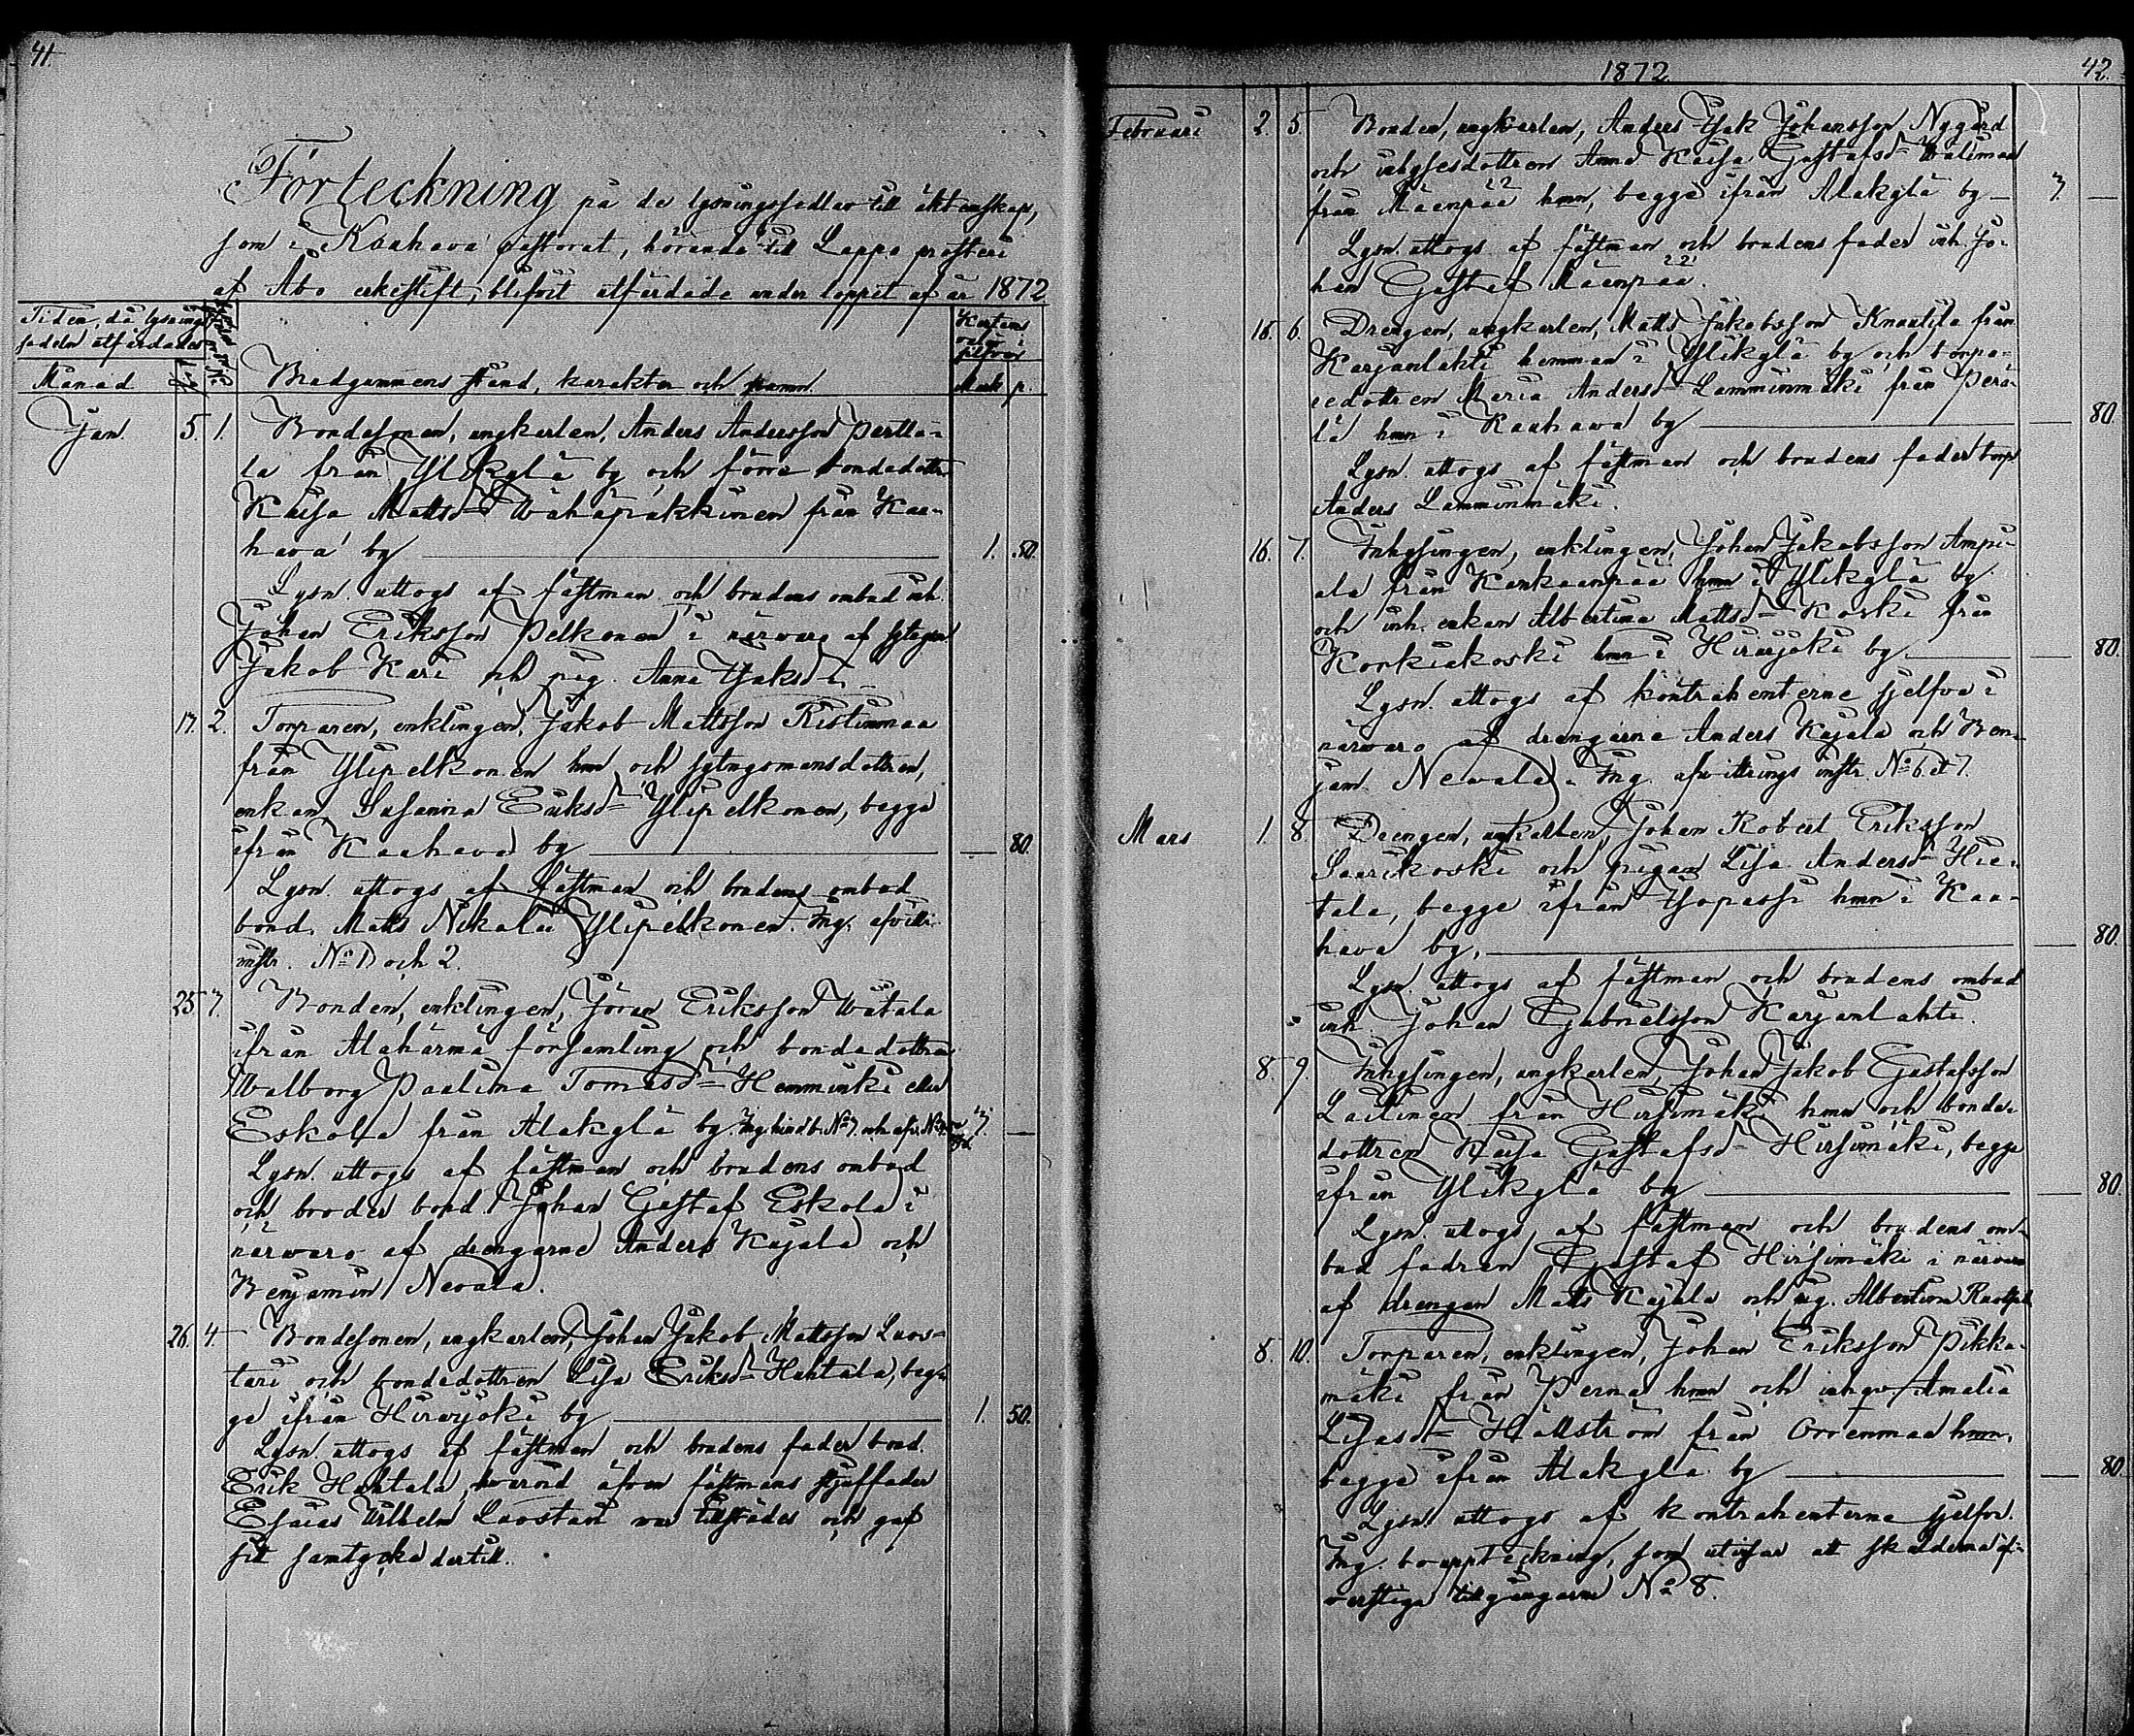 41.
Förteckning på de lysningssedlar till äktenskap,
som i Kauhava pastorat, hörande till Lappo prosteri
af Åbo erkestift, blifvit utfärdade under loppet af år 1872
Tiden, då lysnings
sedeln utfärdades
Månad
Brudgummens stånd, karakter och namn.
Kartans
valör i
silfver
Mark p.
Jan. 5. 1. Bondesonen, ungkarlen, Anders Andersson Perttä-
lä från Ylikylä by och förra bondedottr.
Kaisa Mattsdr Wähäpäkkinen från Kau-
hava by 1. 50.
Lysn. uttogs af fästman och brudens ombud inh.
Johan Eriksson Pelkonen i närvaro af sytngm
Jakob Kari och pig. Anna Jaksdr.
17. 2. Torparen, enklingen, Jakob Mattsson Ristimaa
från Ylipelkonen hmn och sytngsmansdottren,
enkan, Susanna Eriksdr Ylipelkonen, begge
ifrån Kauhava by 80.
Lysn. uttogs af fästman och brudens ombud
bond. Matts Nikolai Ylipelkonen. Ing. afvittr.
instr. No 1 och 2.
25. 3. Bonden, enklingen, Jöran Eriksson Wätälä
ifrån Alahärmä församling och bondedottren
Walborg Paulina Tomasdr Hemminki eller
Eskola från Alakylä by. Ing. hindb. No 7. och afv. No 3.
Lysn. uttogs af fästman och brudens ombud
och broder bond. Johan Gustaf Eskola i
närwaro af drengarne Anders Kujala och
Benjamin Nevala.
26. 4. Bondesonen, ungkarlen, Johan Jakob Mattsson Luos-
tari och bondedottren Lisa Eriksdr Huhtala, beg-
ge ifrån Hirvijoki by 1. 50.
Lysn. uttogs af fästman och brudens fader bond.
Erik Huhtala, hvarvid äfven fästmans stjuffader
Esaias Wilhelm Luostari var tillstädes och gaf
sitt samtycke dertill.
1872
42.
Februari 2. 5. Bonden, ungkarlen, Anders Isak Johansson Nygård
och inhysesdottren Anna Kaisa Gustafsdr Waliman
från Mäenpää hmn, begge ifrån Alakylä by 3.
Lysn. uttogs af fästman och brudens fader inh. Jo-
han Gustaf Mäenpää.
15. 6. Drengen, ungkarlen, Matts Jakobsson Knuutila från
Karjanlahti hemman i Ylikylä by och torpa-
redottren Maria Andersdr Lamminmäki från Perä-
lä hmn i Kauhava by 80.
Lysn. uttogs af fästman och brudens fader torp.
Anders Lamminmäki.
16. 7. Inhysingen, enklingen, Johan Jakobsson Ampi-
ala från Kankaanpää hmn i Ylikylä by
och inh. enkan Albertina Mattsdr Koski från
Korkiakoski hmn i Hirvijoki by 80.
Lysn. uttogs af kontrahenterne sjelfva i
närwaro af drengarne Anders Kujala och Ben-
jam. Nevala. Ing. afvittrings instr. No 6 et 7.
Mars 1. 8. Drengen, ungkarlen, Johan Robert Eriksson
Saarikoski och pigan Lisa Andersdr Hie-
tala, begge ifrån Isopassi hmn i Kau-
hava by, 80.
Lysn. uttogs af fästman och brudens ombud
inh. Johan Gabrielsson Karjanlahti.
8. 9. Inhysingen, ungkarlen, Johan Jakob Gustafsson
Laitinen från Hirsimäki hmn och bonde-
dottren Kaisa Gustafsdr Hirsimäki, begge
ifrån Ylikylä by 80.
Lysn. uttogs af fästman och brudens om-
bud fadren Gustaf Hirsimäki i närvaro
af drengen Matts Kujala och pig. Albertina
8. 10. Torparen, enklingen, Johan Eriksson Pikka-
mäki från Perna hmn och inhqv. Amalia
Lisasdr Hällström från Orrenmaa hmn,
begge ifrån Alakylä by 80.
Lysn. uttogs af kontrahenterne sjelfve.
Ing. bouppteckning, som utvisar att skulderna öf-
verstiga tillgångarne No 8.